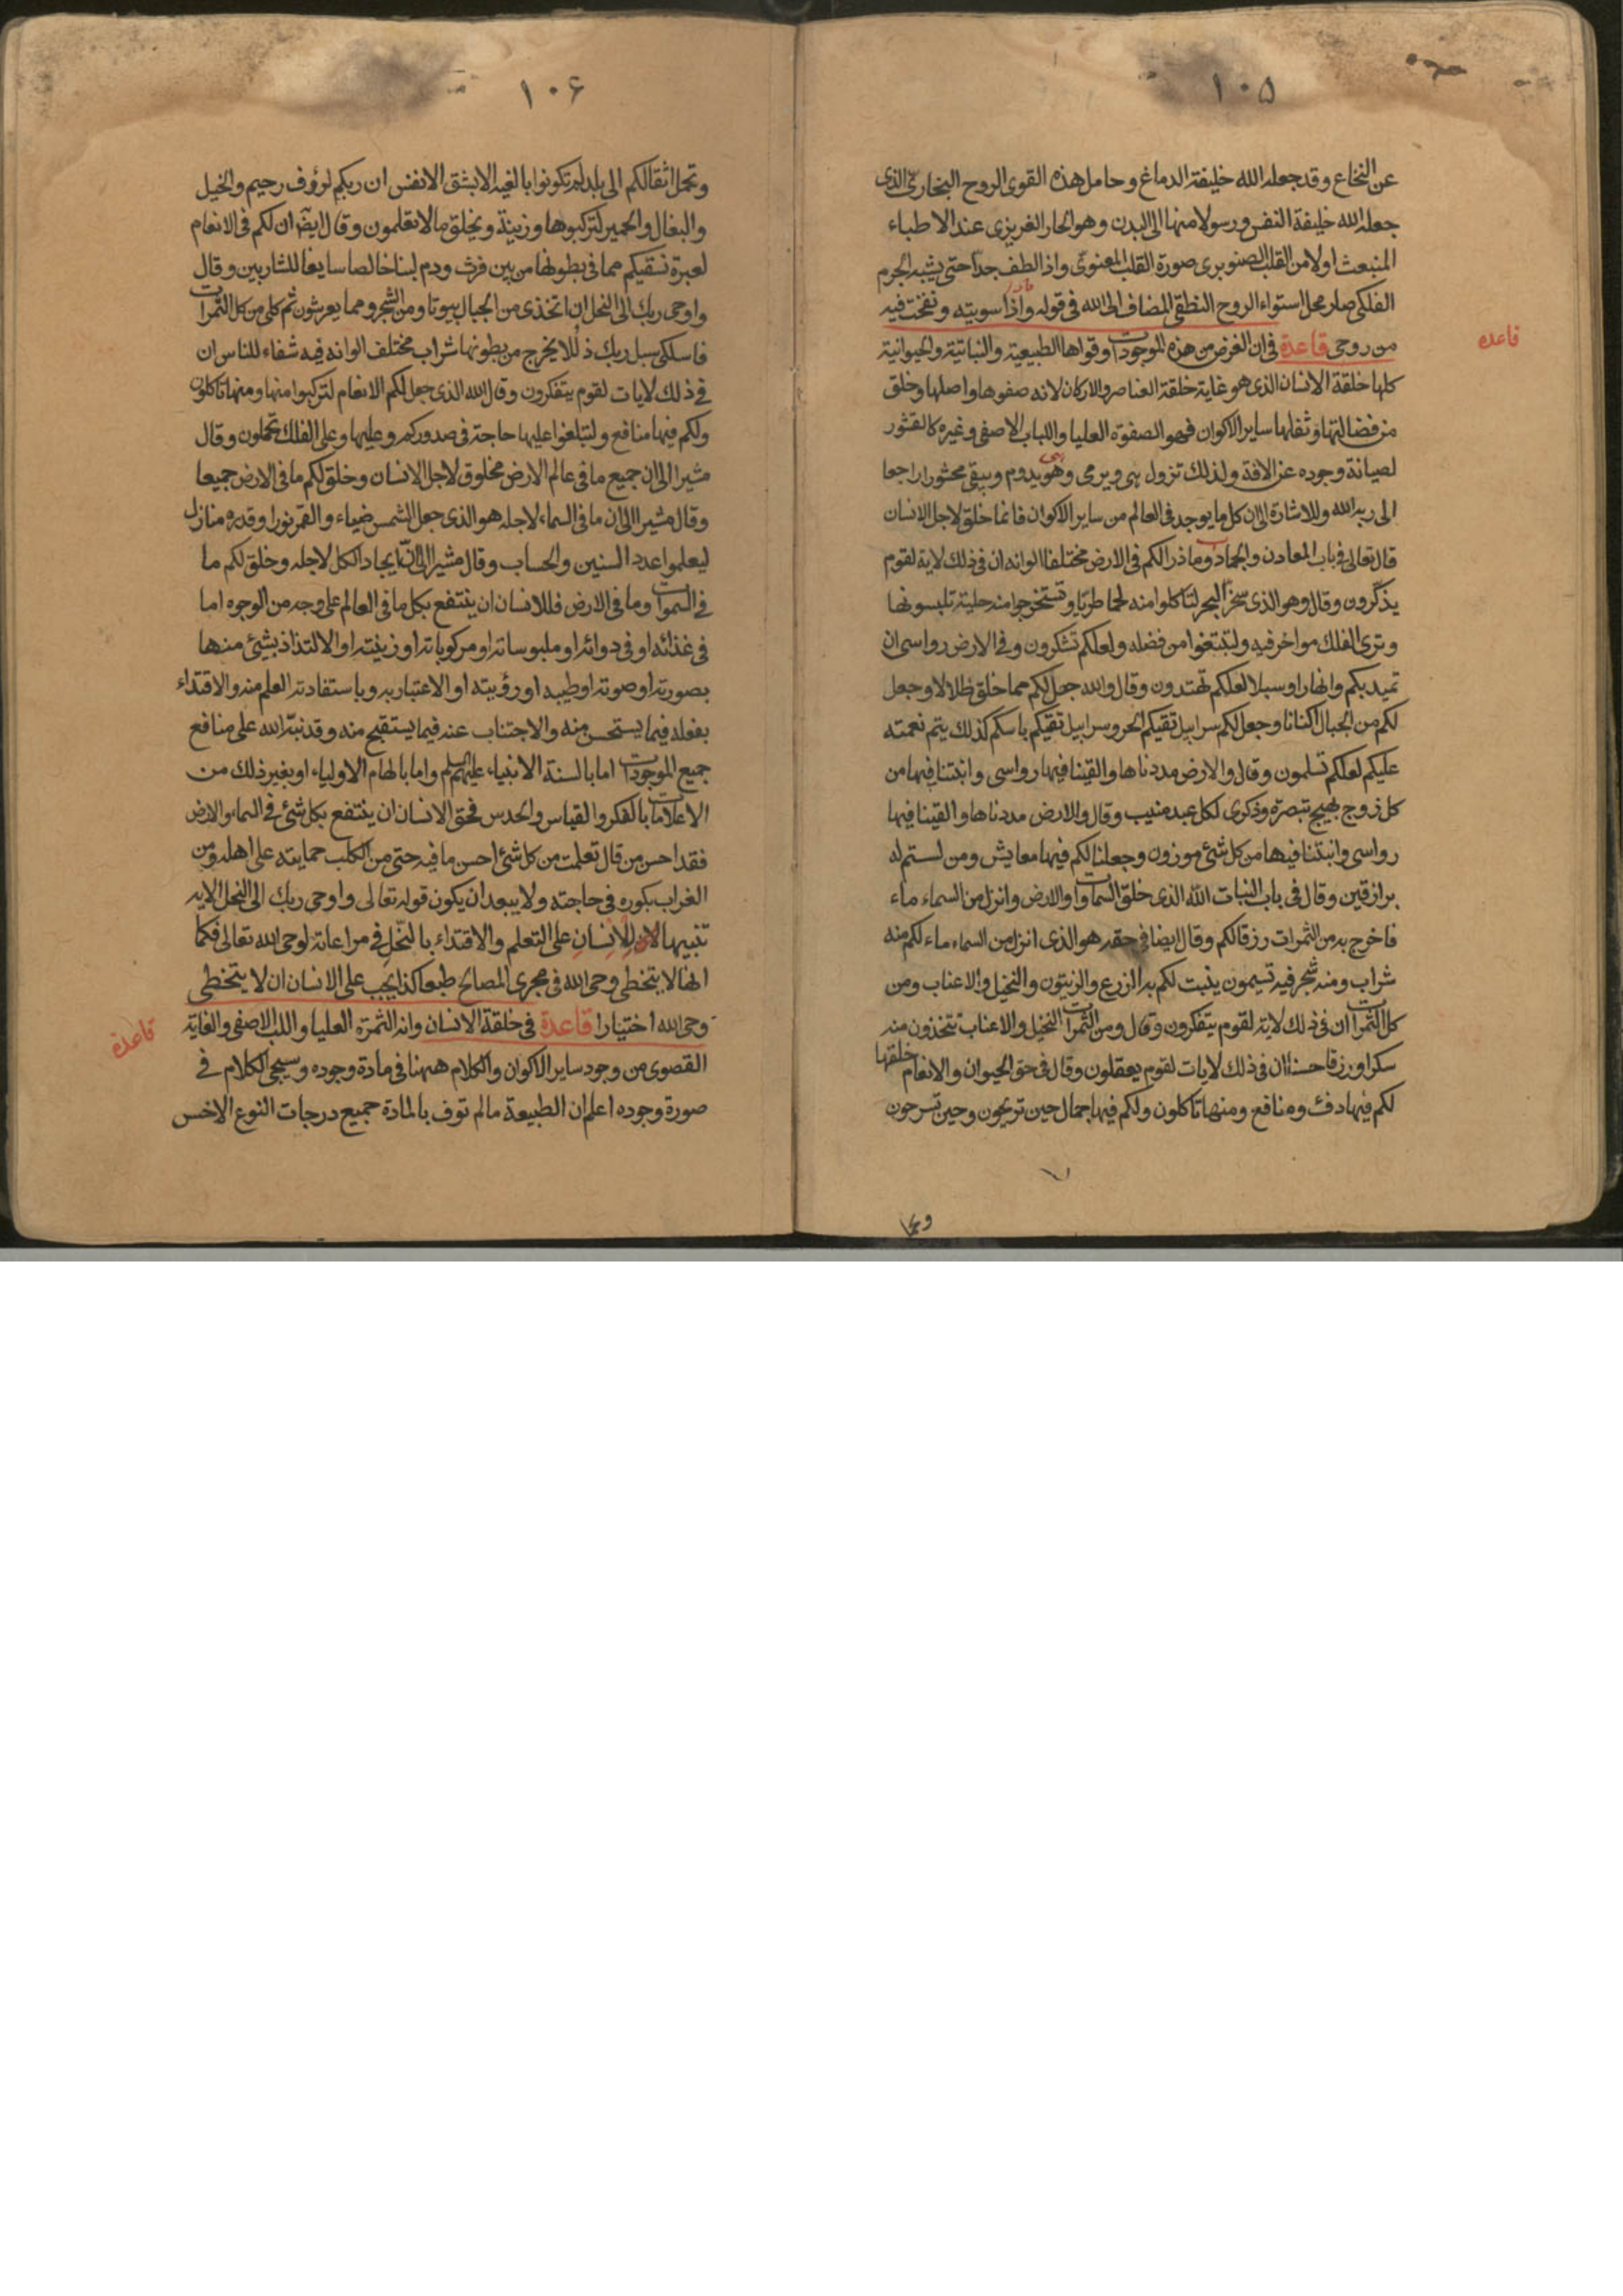 ١٠٥
عن النخاع وقد جعله الله خليفة الدماغ وحامل هذه القوى الروح البخارى الذى
جعله الله خليفة النفس ورسولا منها الى البدن وهو الحار الغريزى عند الاطباء
المنبعث اولا من القلب الصنوبرى صورة القلب المعنوى واذا لطف جدا حتى يشبه الجرم
الفلكى صار محل استواء الروح النطقى المضاف الى الله فى قوله واذا سويته ونفخت فيه
من روحى قاعدة فى ان الغرض من هذه الموجودات وقواها الطبيعية والنباتية والحيوانية
قاعده
كلها خلقة الانسان الذى هو غاية خلقة العناصر والاركان لانه صفوها واصلها وخلق
من فضالتها وثفلها ساير الاكوان فهو الصفوة العليا واللباب الاصفى وغيره كالقشور
لصيانة وجوده عن الافة ولذلك تزول هى ويرمى وهو يدوم ويبقى محشورا راجعا
الى ربه الله وللاشارة الى ان كل ما يوجد فى العالم من ساير الاكوان فانما خلق لاجل الانسان
قال تعالى فى باب المعادن والجماد وما ذرا لكم فى الارض مختلفا الوانه ان فى ذلك لاية لقوم
يذكرون وقال وهو الذى سخر البحر لتاكلوا منه لحما طريا وتستخرجوا منه حلية تلبسونها
وترى الفلك مواخر فيه ولتبتغوا من فضله ولعلكم تشكرون وفى الارض رواسى ان
تميد بكم وانهارا وسبلا لعلكم تهتدون وقال والله جعل لكم مما خلق ظلالا وجعل
لكم من الجبال اكنانا وجعل لكم سرابيل تقيكم الحر وسرابيل تقيكم باسكم كذلك يتم نعمته
عليكم لعلكم تسلمون وقال والارض مددناها والقينا فيها رواسى وانبتنا فيها من
كل زوج بهيج تبصرة وذكرى لكل عبد منيب وقال والارض مددناها والقينا فيها
رواسى وانبتنا فيها من كل شئ موزون وجعلنا لكم فيها معايش ومن لستم له
برازقين وقال فى باب النبات الله الذى خلق السماوات والارض وانزل من السماء ماء
فاخرج به من الثمرات رزقا لكم وقال ايضا فى حقه هو الذى انزل من السماء ماء لكم منه
شراب ومنه شجر فيه تسيمون ينبت لكم به الزرع والزيتون والنخيل والاعناب ومن
كل الثمرات ان فى ذلك لاية لقوم يتفكرون وقال ومن الثمرات النخيل والاعناب تتخذون منه
سكرا ورزقا حسنا ان فى ذلك لايات لقوم يعقلون وقال فى حق الحيوان والانعام خلقها
لكم فيها دفئ ومنافع ومنها تاكلون ولكم فيها جمال حين تريحون وحين تسرحون
١٠۶
وتحمل اثقالكم الى بلد لم تكونوا بالغيه الا بشق الانفس ان ربكم لرؤوف رحيم والخيل
والبغال والحمير لتركبوها وزينة ويخلق ما لا تعلمون وقال ايضا ان لكم فى الانعام
لعبرة نسقيكم مما فى بطونها من بين فرث ودم لبنا خالصا سايغا للشاربين وقال
واوحى ربك الى النحل ان اتخذى من الجبال بيوتا ومن الشجر ومما يعرشون ثم كلى من كل الثمرات
فاسلكى سبل ربك ذللا يخرج من بطونها شراب مختلف الوانه فيه شفاء للناس ان
فى ذلك لايات لقوم يتفكرون وقال الله الذى جعل لكم الانعام لتركبوا منها ومنها تاكلون
ولكم فيها منافع ولتبلغوا عليها حاجة فى صدوركم وعليها وعلى الفلك تحملون وقال
مشيرا الى ان جميع ما فى عالم الارض مخلوق لاجل الانسان وخلق لكم ما فى الارض جميعا
وقال مشيرا الى ان ما فى السماء لاجله هو الذى جعل الشمس ضياء والقمر نورا وقدره منازل
ليعلموا عدد السنين والحساب وقال مشيرا الى ان ايجاد الكل لاجله وخلق لكم ما
فى السموات وما فى الارض فللانسان ان ينتفع بكل ما فى العالم على وجه من الوجوه اما
فى غذائه او فى دوائه او ملبوساته او مركوباته او زينته او الالتذاذ بشئ منها
بصورته او صوته او طيبه او رؤيته او الاعتبار به وباستفادته العلم منه والاقتداء
بفعله فيما يستحسن منه والاجتناب عنه فيما يستقبح منه وقد نبه الله على منافع
جميع الموجودات اما بالسنة الانبياء عليهم السلم واما بالهام الاولياء او بغير ذلك من
الاعلامات بالفكر والقياس والحدس فحق الانسان ان ينتفع بكل شئ فى السماء والارض
فقد احسن من قال تعلمت من كل شئ احسن ما فيه حتى من الكلب حمايته على اهله ومن
الغراب بكوره فى حاجته ولا يبعد ان يكون قوله تعالى واوحى ربك الى النحل الايه
تنبيها للانسان على التعلم والاقتداء بالنحل فى مراعاته لوحى الله تعالى فكما
انها لا يتخطى وحى الله فى مجرى المصالح طبعا كذا يجب على الانسان ان لا يتخطى
وحى الله اختيارا قاعدة فى خلقة الانسان وانه الثمرة العليا واللب الاصفى والغاية
قاعدة
القصوى من وجود ساير الاكوان والكلام ههنا فى مادة وجوده وسيجئ الكلام فى
صورة وجوده اعلم ان الطبيعة ما لم توف بالمادة جميع درجات النوع الاخس